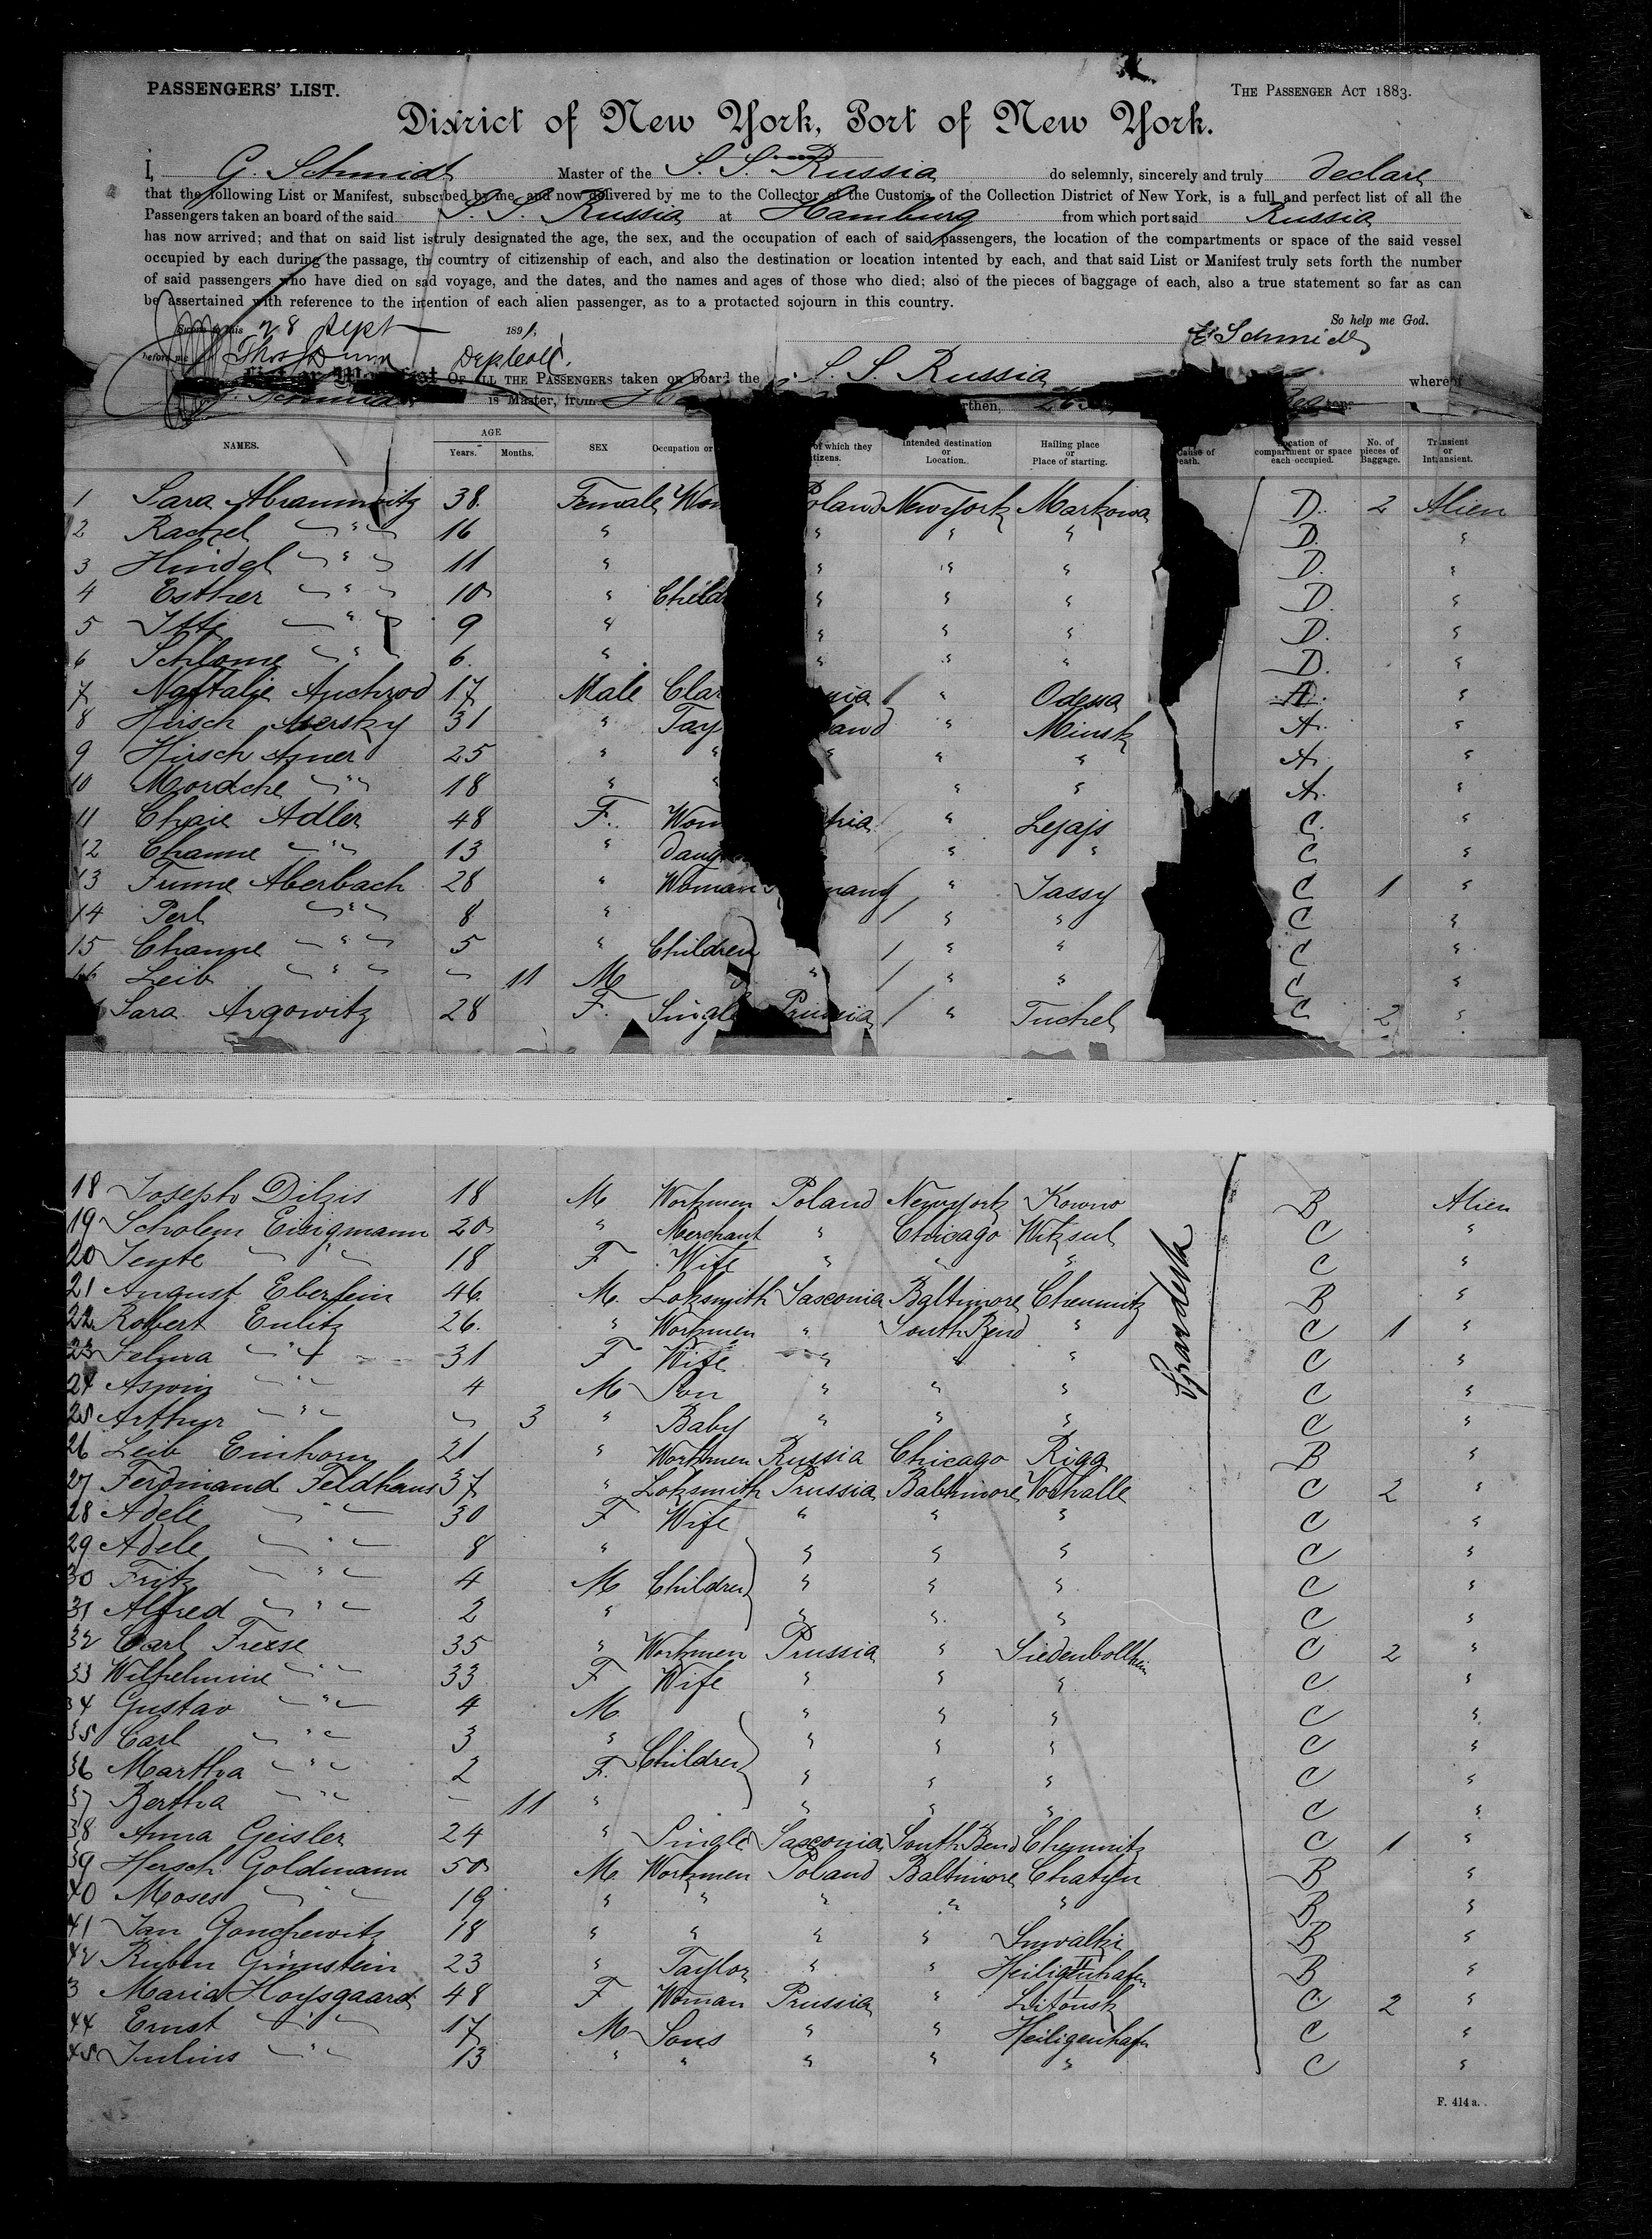 PASSENGERS' LIST. THE PASSENGER ACT 1883.
District of New York, Port of New York.
I, G. Schmidt Master of the S. S. Russia do selemnly, sincerely and truly declare
that the following List or Manifest, subscribed by me, and now delivered by me to the Collector of the Customs of the Collection District of New York, is a full and perfect list of all the
Passengers taken an board of the said S. S. Russia at Hamburg from which port said Russia
has now arrived; and that on said list is truly designated the age, the sex, and the occupation of each of said passengers, the location of the compartments or space of the said vessel
occupied by each during the passage, the country of citizenship of each, and also the destination or location intented by each, and that said List or Manifest truly sets forth the number
of said passengers who have died on said voyage, and the dates, and the names and ages of those who died; also of the pieces of baggage of each, also a true statement so far as can
be assertained with reference to the intention of each alien passenger, as to a protacted sojourn in this country.
So help me God.
this 28 Sept 1891.
G Schmidt
before me Thos Dunn Dep Coll.
OF ALL THE PASSENGERS taken on board the S. S. Russia whereof
G. Schmidt is Master, from burthen, tons
NAMES. AGE Years. Months. SEX Occupation or of which they citizens. Intended destination or Location. Hailing place or Place of starting. Cause of Death. Location of compartment or space each occupied. No. of pieces of Baggage. Transient or Intransient.
1 Sara Abramowitz 38. Female Wom Poland New york Markowa D. 2 Alien
2 Rachel " 16 " " " " D. "
3 Hindel " 11 " " " " D. "
4 Esther " 10 " Child " " " D. "
5 Itte " 9 " " " " D. "
6 Schlome " 6. " " " " D. "
7 Naftalie Auchrod 17 Male Clar nia " Odessa A. "
8 Hirsch Asersky 31 " Tay land " Minsk A. "
9 Hirsch Asner 25 " " " " " A. "
10 Mordche " 18 " " " " A. "
11 Chaie Adler 48 F. Wom tria " Lejajs C. "
12 Channe " 13 " Daug " " C "
13 Frume Aberbach 28 " Woman many " Jassy C 1 "
14 Perl " 8 " " " C "
15 Channe " 5 " Children " " C "
16 Leib " - 11 M " " " C "
Sara Argowitz 28 F. Single Prussia " Tuchel C 2 "
18 Joseph Dilzis 18 M Workmen Poland New york Kowno B Alien
19 Scholem Eisigmann 20 " Merchant " Chicago Witzsul C "
20 Jente " 18 F Wife " " " C "
21 August Eberlein 46. M. Loksmith Sasconia Baltimore Chemnitz B "
22 Robert Eulitz 26. " Workmen " South Bend " C 1 "
23 Selma " 31 F Wife " " " C "
24 Aswin " 4 M Son " " " C "
25 Arthur " - 3 " Baby " " " C "
26 Leib Einhorn 21 " Workmen Russia Chicago Riga B "
27 Ferdinand Feldhaus 37 " Loksmith Prussia Baltimore Vohalle C 2 "
28 Adele " 30 F Wife " " " C "
29 Adele " 8 " " " " C "
30 Fritz " 4 M Children " " " C "
31 Alfred " 2 " " " " C "
32 Carl Freese 35 " Workmen Prussia " Siedenbollhin C 2 "
33 Wilhelmine " 33 F Wife " " " C "
34 Gustav " 4 M " " " C "
35 Carl " 3 " " " " C "
36 Martha " 2 F. Children " " " C "
37 Bertha " - 11 " " " " C "
38 Anna Geisler 24 " Single Sasconia South Bend Chemnitz C 1 "
39 Hersch Goldmann 50 M Workmen Poland Baltimore Chatyn B "
40 Moses " 19 " " " " " B "
41 Jan Gonchewitz 18 " " " " Suwalki B "
42 Ruben Grünstein 23 " Taylor " " B "
3 Maria Hoysgaard 48 F Woman Prussia " C. 2 "
44 Ernst " 17 M Sons " " Heiligenhafen C "
45 Julius " 13 " " " " " C "
F. 414 a.